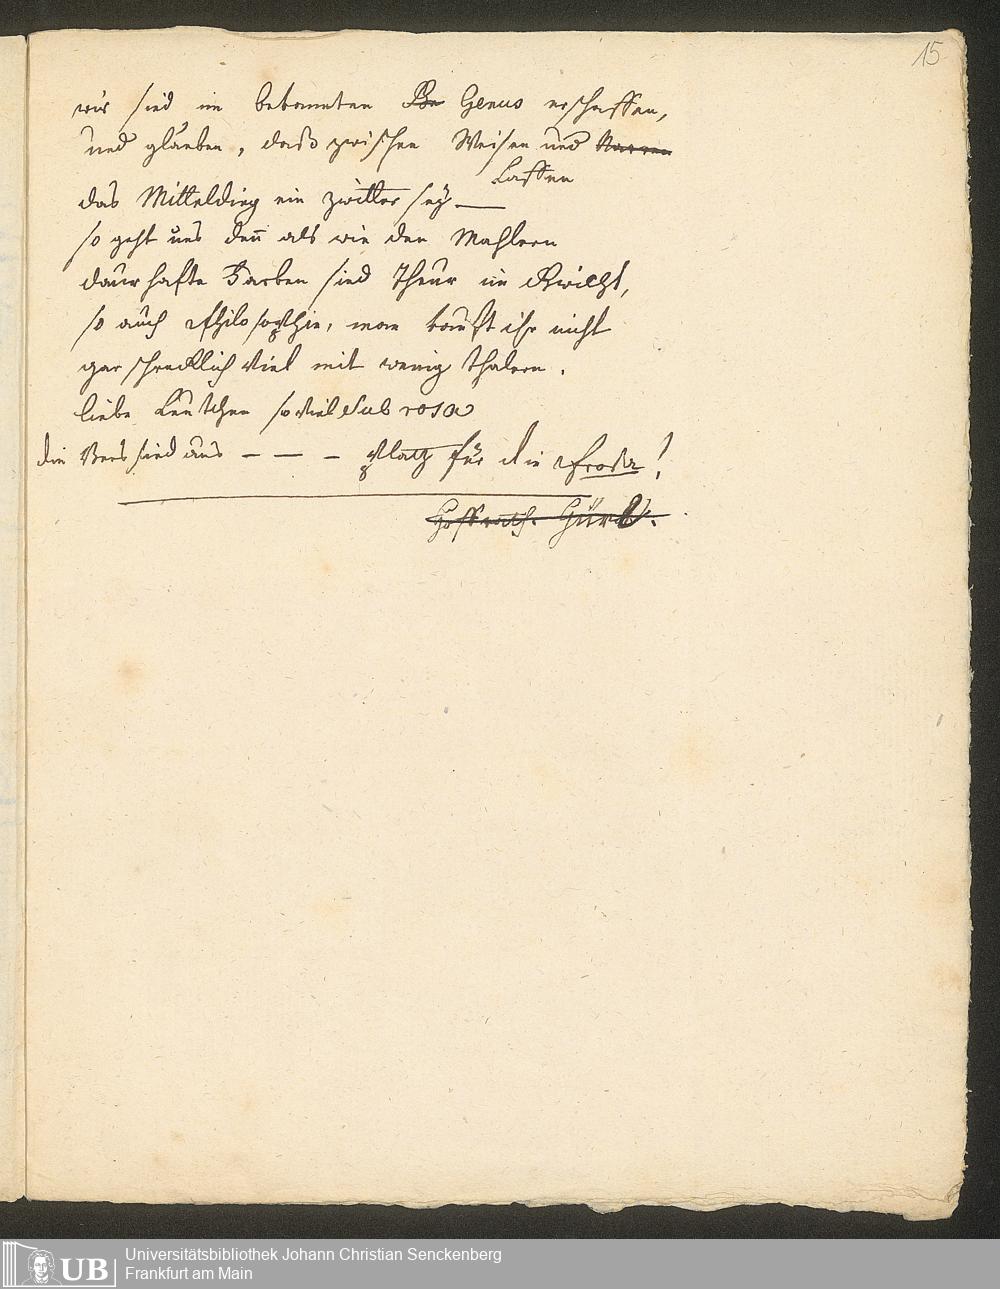 15
wir sind im bekannten Be Genus erschaffen,
und glauben, daß zwischen Weisen und Narren
Laffen
das Mittelding ein zwitter sey —
so geht uns den̄ als wie den Mahlern
daurhafte Farben sind theur im
so auch Philosophie, man kauft ihr nicht
gar schrecklich Viel mit wenig thalern.
liebe Leutchen so Viel sub rosa
die Vers sind aus — — — Platz für die Prosa!
Hoffrath.
Universitätsbibliothek Johann Christian Senckenberg
Frankfurt am Main
UB